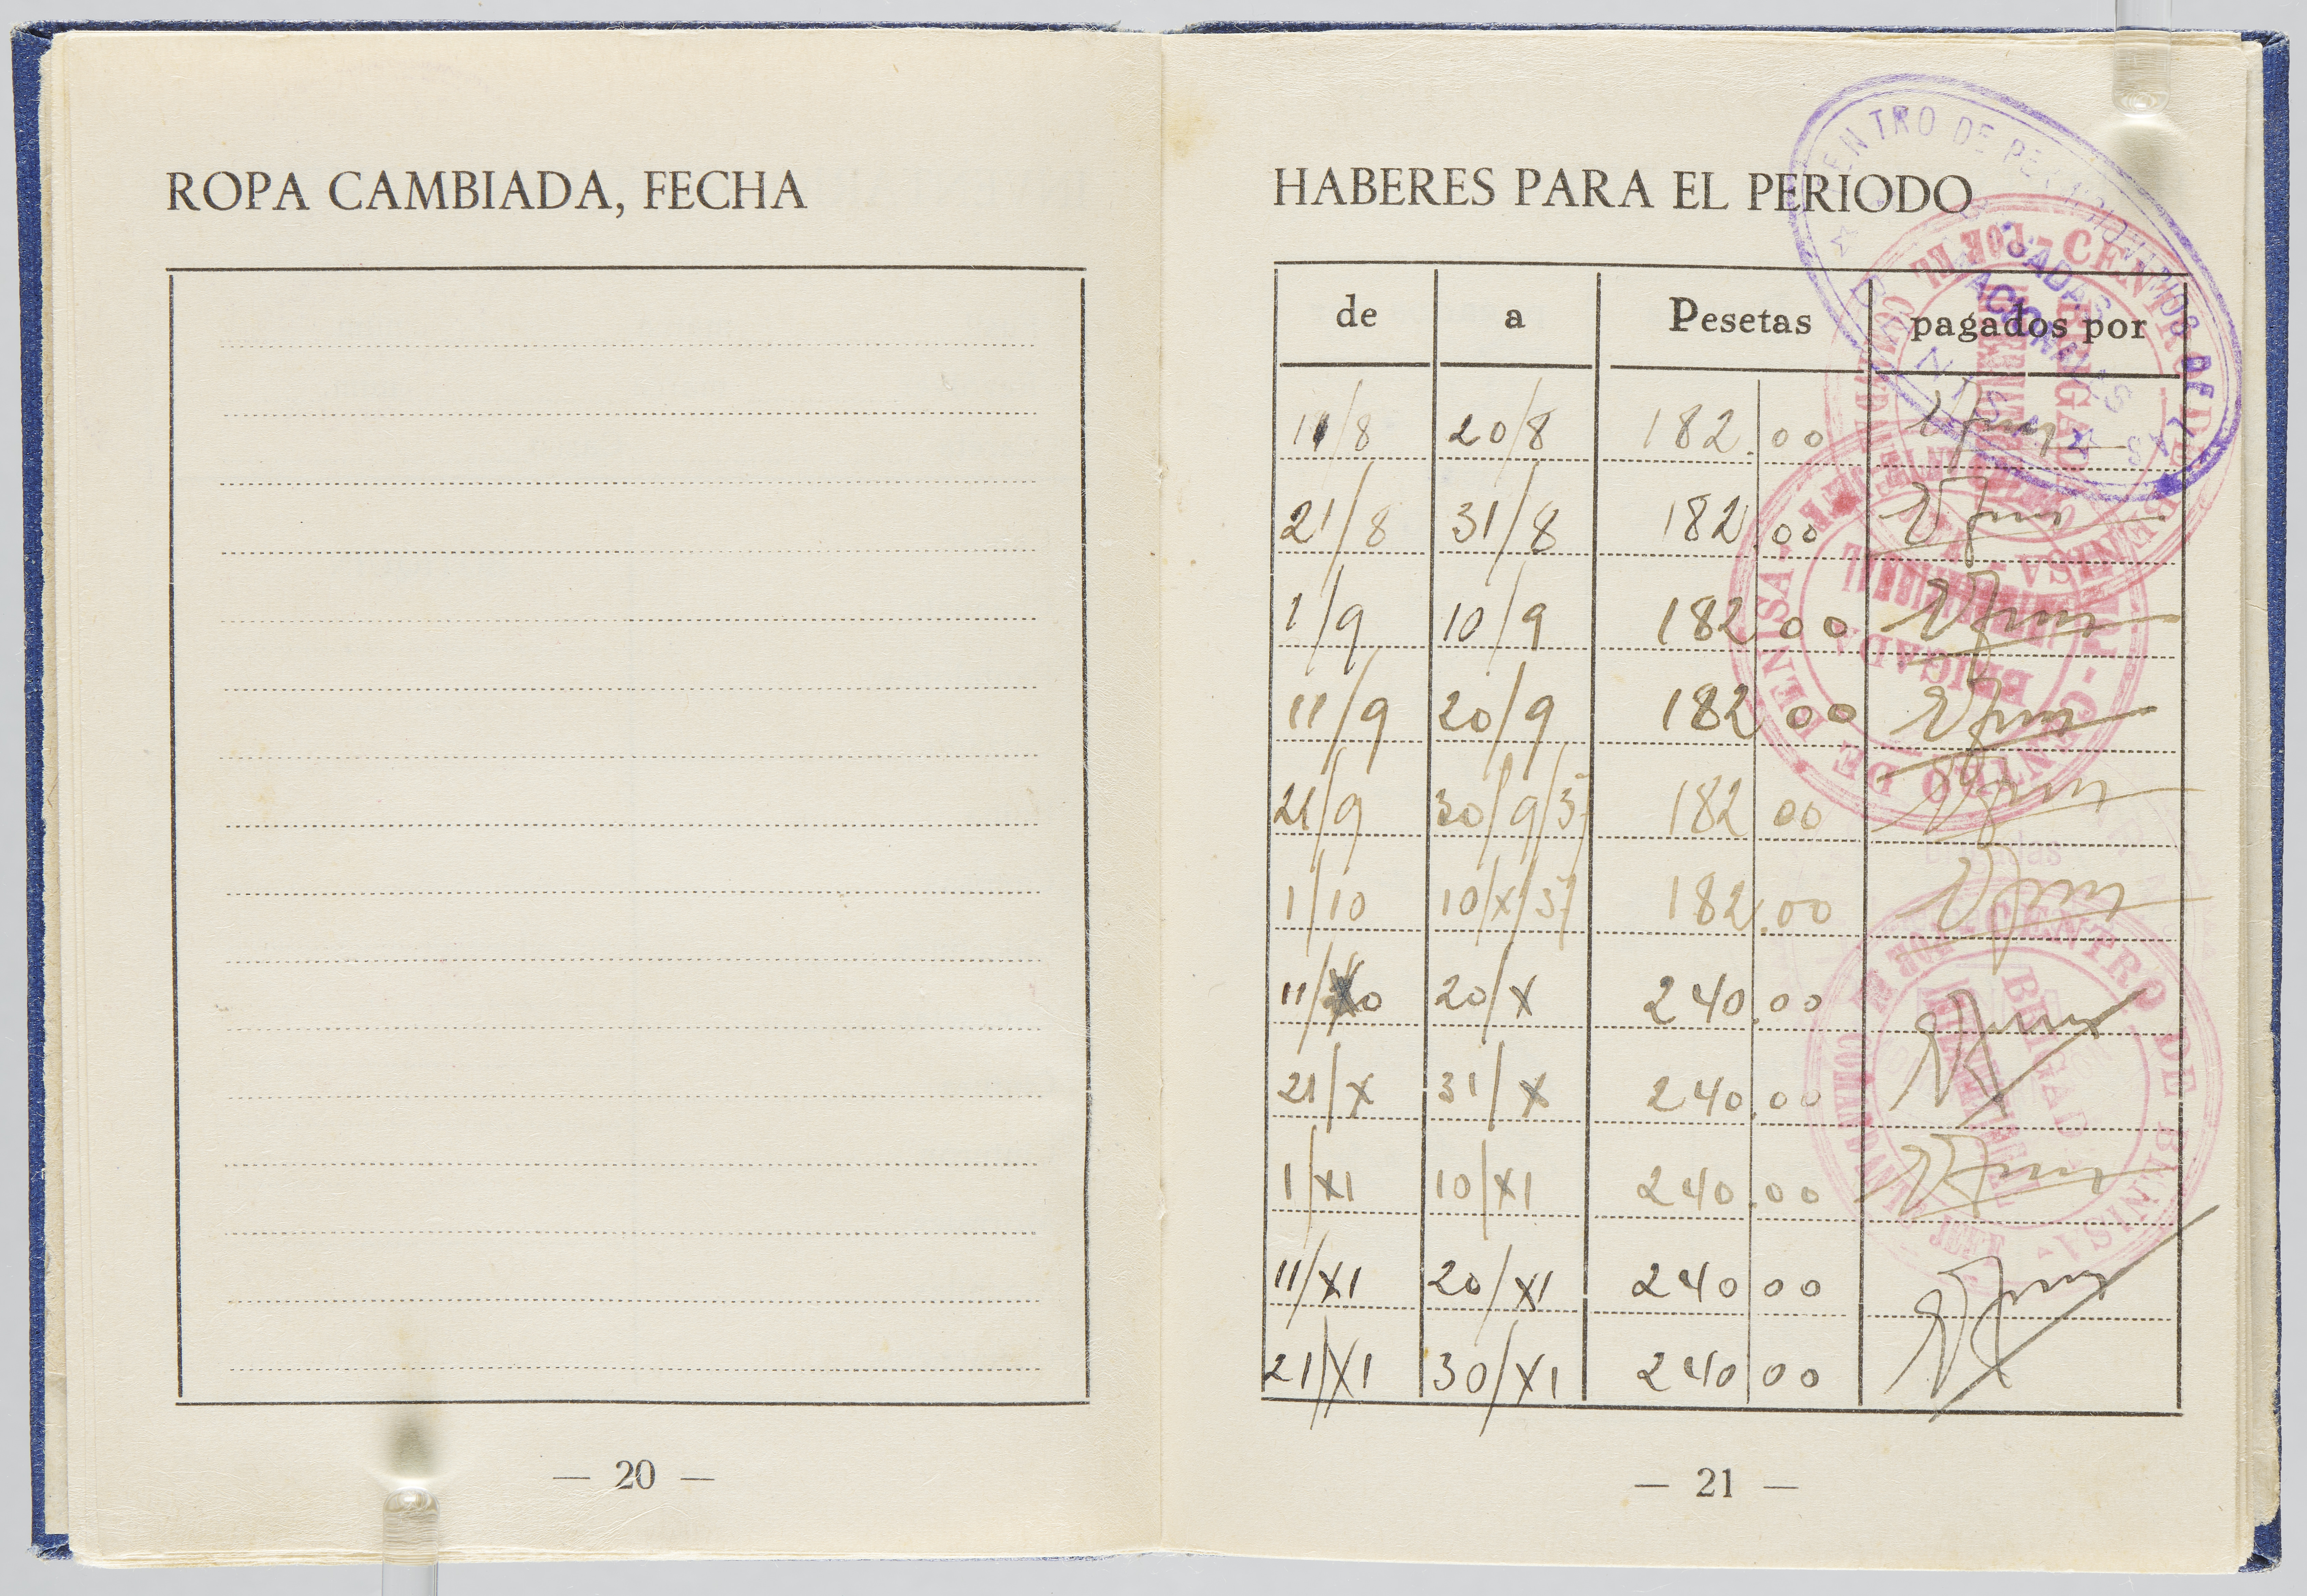 ROPA CAMBIADA, FECHA
— 20 —
HABERES PARA EL PERIODO
de a Pesetas pagados por
11/8 20/8 182.00
21/8 31/8 182.00
1/9 10/9 182 00
11/9 20/9 182 00
21/9 30/9/37 182 00
1/10 10/X/37 182.00
11/10 20/X 240.00
21/X 31/X 240.00
1/XI 10/XI 240.00
11/XI 20/XI 240 00
21/XI 30/XI 240 00
— 21 —
CENTRO DE
BRIGADAS
NACIONALES
CENTRO DE BENISA
BRIGADA
CENTRO DE BENISA
BRIGADA
CENTRO DE BENISA
BRIGADA